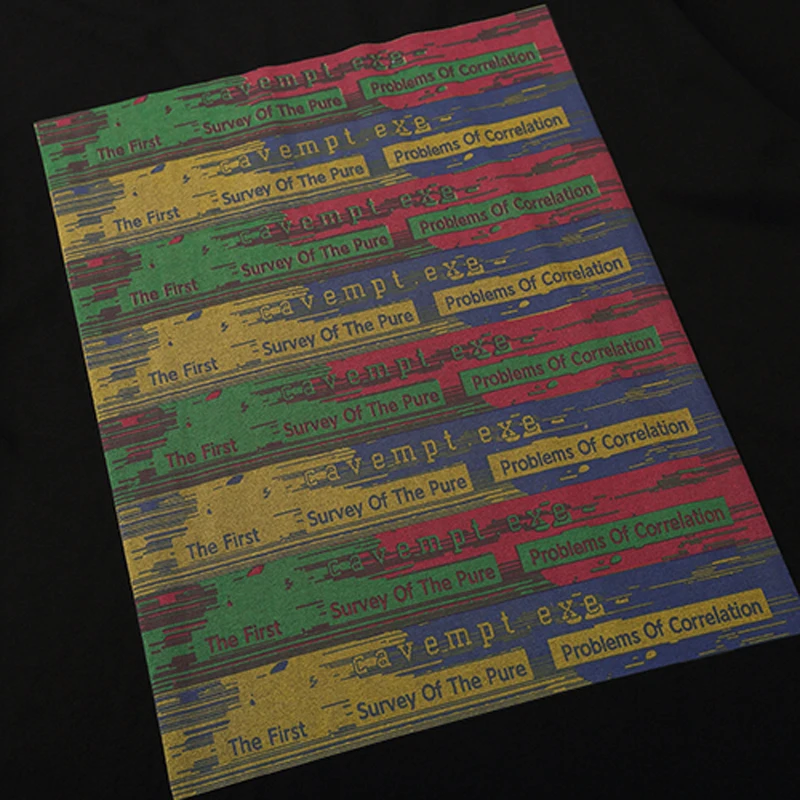 cavempt exe-
The First Survey Of The Pure Problems Of Correlation
cavempt.exe-
The First Survey Of The Pure Problems Of Correlation
cavempt exe-
The First Survey Of The Pure Problems Of Correlation
cavempt.exe-
The First Survey Of The Pure Problems Of Correlation
cavempt exe-
The First Survey Of The Pure Problems Of Correlation
cavempt.exe-
The First Survey Of The Pure Problems Of Correlation
cavempt exe-
The First Survey Of The Pure Problems Of Correlation
cavempt.exe-
The First Survey Of The Pure Problems Of Correlation